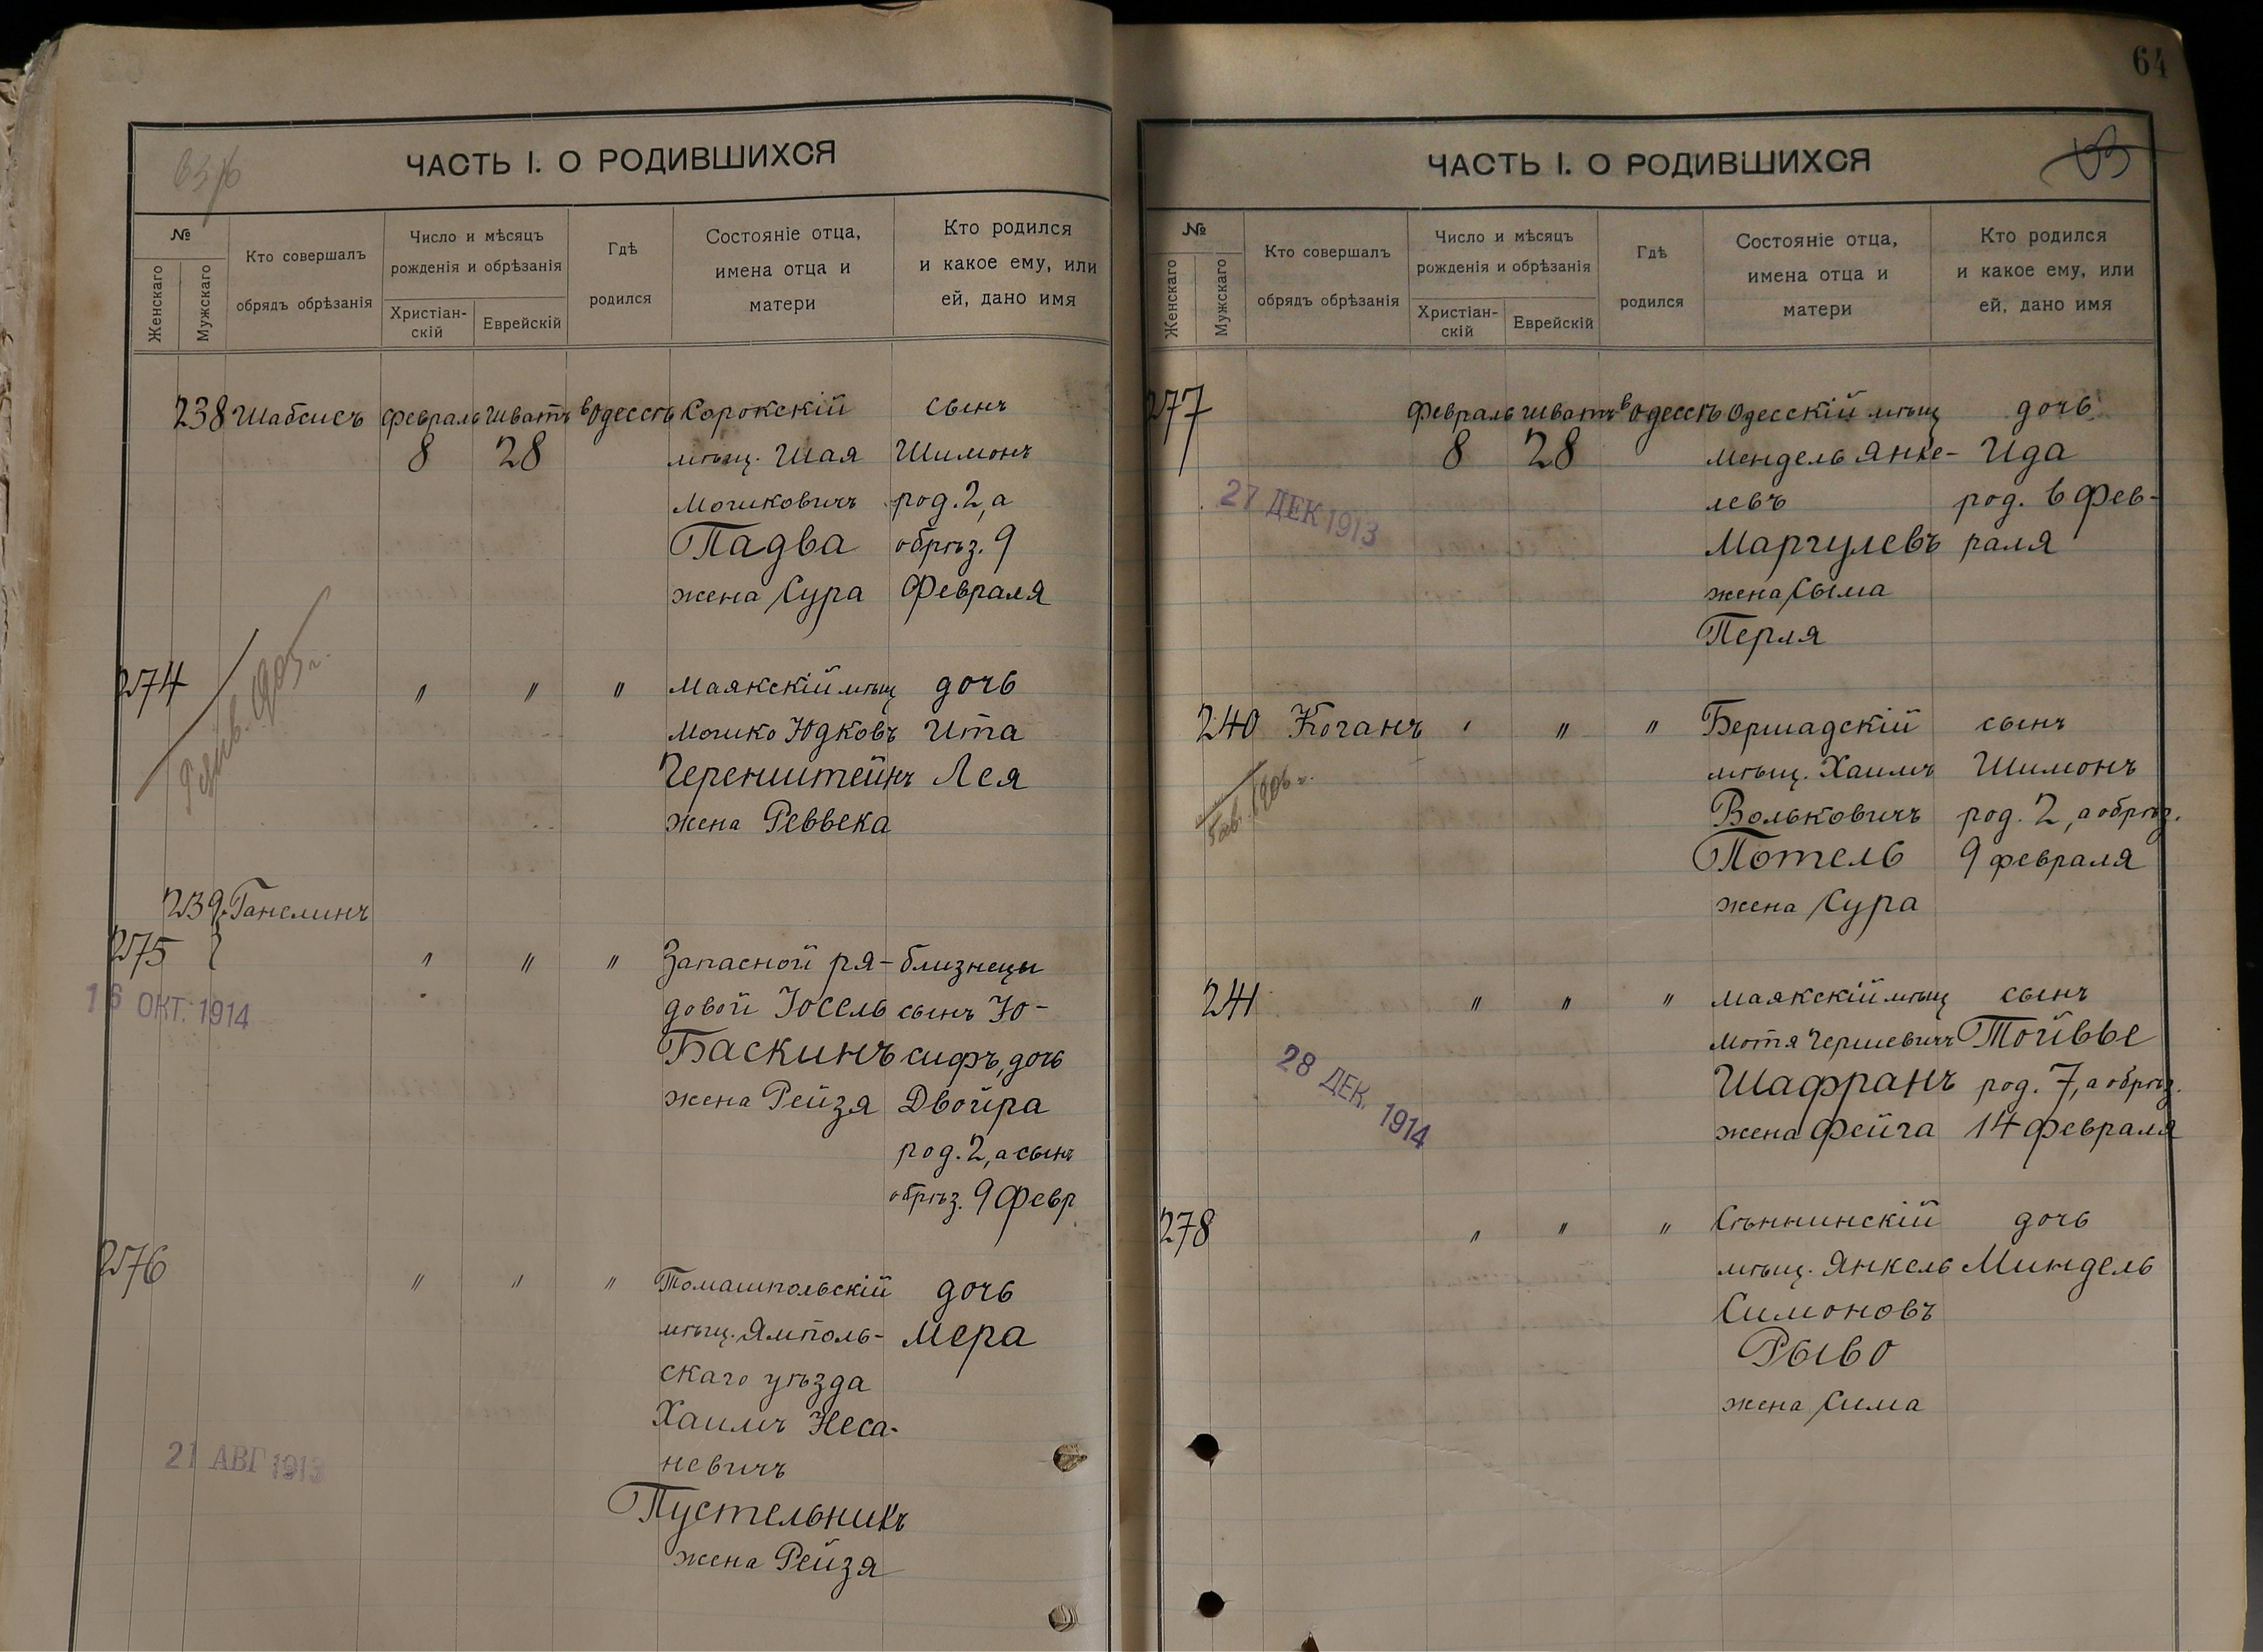 ЧАСТЬ I. О РОДИВШИХСЯ
№
Женскаго
Мужскаго
Кто совершалъ
обрядъ обрѣзанія
Число и мѣсяцъ
рожденія и обрѣзанія
Христіан-
скій
Еврейскій
Гдѣ
родился
Состояніе отца,
имена отца и
матери
Кто родился
и какое ему, или
ей, дано имя
238 Шабсисъ Февраль Шватъ в Одессѣ Сорокскій сынъ
8 28 мѣщ. Шая Шимонъ
Мошковичъ род. 2, а
Падва обрѣз. 9
жена Сура Февраля
274 " " " Маякскій мѣщ дочь
Мошко Юдковъ Ита
Черенштейнъ Лея
жена Реввека
239 Ганелинъ
275 " " " Запасной ря- близнецы
16 ОКТ. 1914 довой Іосель сынъ Іо-
Баскинъ сифъ, дочь
жена Рейзя Двойра
род. 2, а сынъ
обрѣз. 9 Февр
276 " " " Томашпольскій дочь
мѣщ. Ямполь- Мера
скаго уѣзда
Хаимъ Неса-
21 АВГ 1913 невичъ
Пустельникъ
жена Рейзя
64
ЧАСТЬ I. О РОДИВШИХСЯ
№
Женскаго
Мужскаго
Кто совершалъ
обрядъ обрѣзанія
Число и мѣсяцъ
рожденія и обрѣзанія
Христіан-
скій
Еврейскій
Гдѣ
родился
Состояніе отца,
имена отца и
матери
Кто родился
и какое ему, или
ей, дано имя
277 Февраль Шватъ в Одессѣ Одесскій мѣщ дочь
8 28 Мендель Янке- Ида
27 ДЕК 1913 левъ род. 6 Фев-
Маргулевъ раля
жена Сыма
Перля
240 Коганъ " " " Бершадскій сынъ
мѣщ. Хаимъ Шимонъ
Вольковичъ род. 2, а обрѣз.
Потель 9 февраля
жена Сура
241 " " " Маякскій мѣщ сынъ
Мотя Гершевичъ Тойвье
28 ДЕК. 1914 Шафранъ род. 7, а обрѣз.
жена Фейга 14 февраля
278 " " " Сѣннинскій дочь
мѣщ. Янкель Миндель
Симоновъ
Рыво
жена Сима